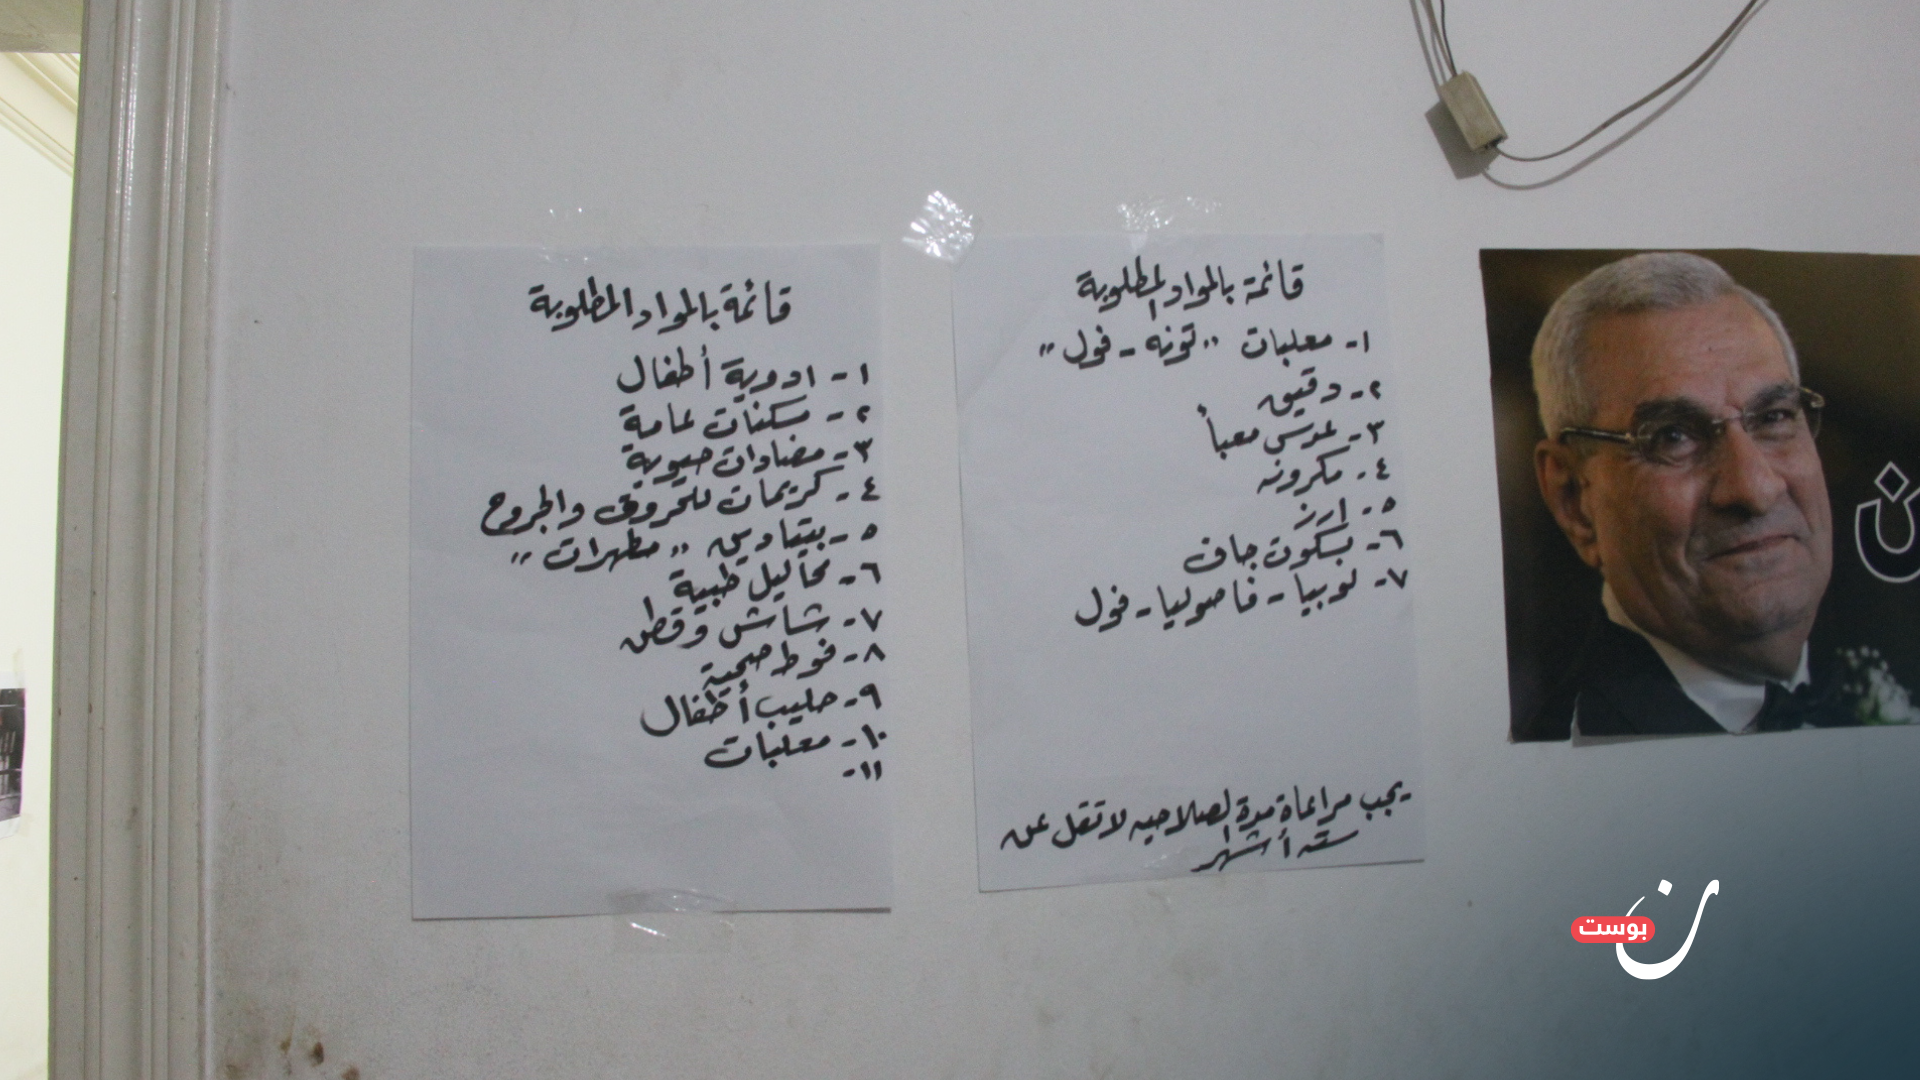 قائمة بالمواد المطلوبة
١- معلبات "تونه - فول"
٢- دقيق
٣- عدس معبأ
٤- مكرونه
٥- ارز
٦- بسكوت جاف
٧- لوبيا - فاصوليا - فول
- يجب مراعاة مدة الصلاحيه لا تقل عن
سته أشهر
قائمة بالمواد المطلوبة
١- ادوية أطفال
٢- مسكنات عامة
٣- مضادات حيوية
٤- كريمات للحروق والجروح
٥- بيتادين "مطهرات"
٦- محاليل طبية
٧- شاش وقطن
٨- فوط صحية
٩- حليب أطفال
١٠- معلبات
١١-
ن
ن بوست